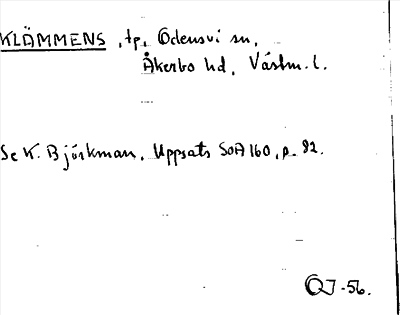 KLÄMMENS, tp, Odensvi sn,
Åkerbo hd, Västm. l.
Se K. Björkman, Uppsats SOA 160, p. 82.
OJ-56.